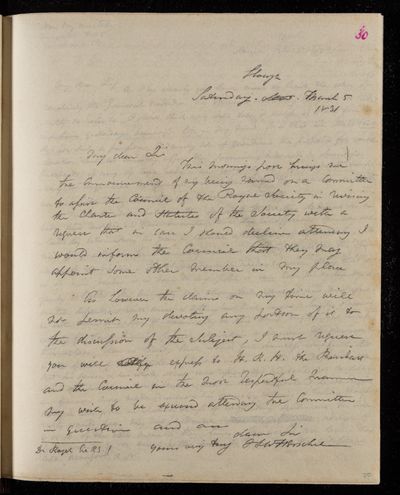 30
Slough
Saturday March 5
1831
My dear Sir
This mornings post brings me
the announcement of my being named on a Committee
to assist the Council of the Royal Society in revising
the Charter and Statutes of the Society with a
request that in case I should decline attending I
would inform the Council that they may
appoint some other member in my place
As however the claims on my time will
not permit my devoting any portion of it to
the discussion of the subject, I must request
you will express to H. R. H. the President
and the Council in the most respectful manner
my wish to be excused attending the Committee
in question and am
dear Sir
yours very truly J F W Herschel
Dr Roget Sec R.S.